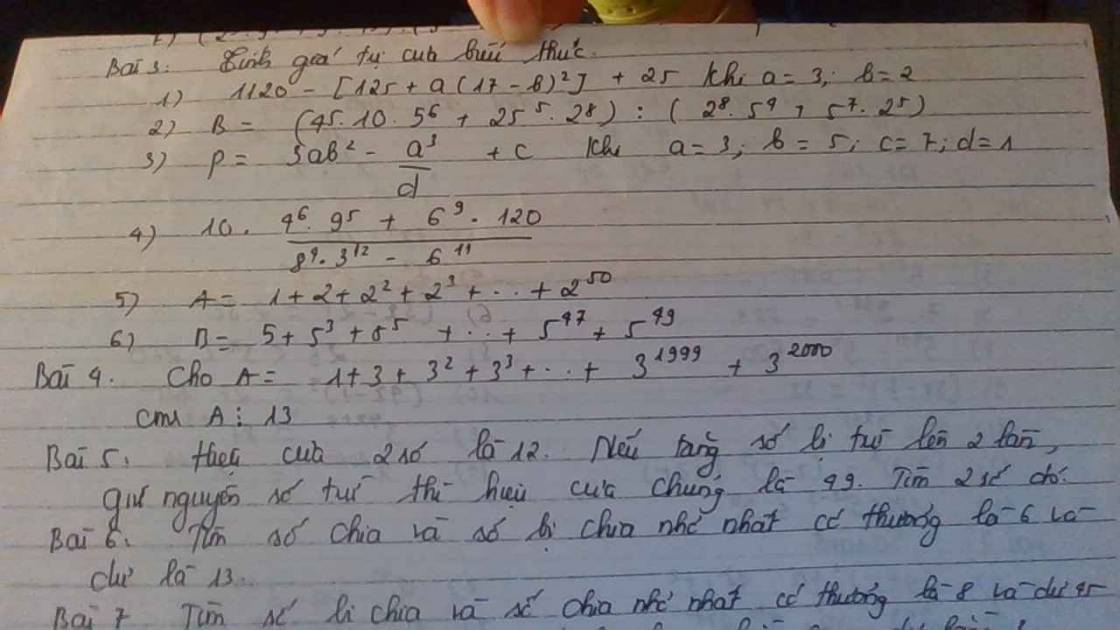 Bài 3. Tính giá trị của biểu thức.
1) 1120 - [125 + a(17 - b)²] + 25 khi a = 3; b = 2
2) B = (45.10.5⁶ + 25⁵.28) : (2⁸.5⁴ + 5⁷.2⁵)
3) P = 3ab² - a³/d + c khi a = 3; b = 5; c = 7; d = 1
4) 10. (4⁶.9⁵ + 6⁹.120)/(8⁴.3¹² - 6¹¹)
5) A = 1 + 2 + 2² + 2³ + ... + 2⁵⁰
6) B = 5 + 5³ + 5⁵ + ... + 5⁴⁷ + 5⁴⁹
Bài 4. Cho A = 1 + 3 + 3² + 3³ + ... + 3¹⁹⁹⁹ + 3²⁰⁰⁰
cm A ⋮ 13
Bài 5. Hiệu của 2 số là 12. Nếu tăng số bị trừ lên 2 lần,
giữ nguyên số trừ thì hiệu của chúng là 49. Tìm 2 số đó.
Bài 6. Tìm số chia và số bị chia nhỏ nhất có thương là 6 và
dư là 13.
Bài 7 Tìm số bị chia và số chia nhỏ nhất có thương là 8 và dư 45